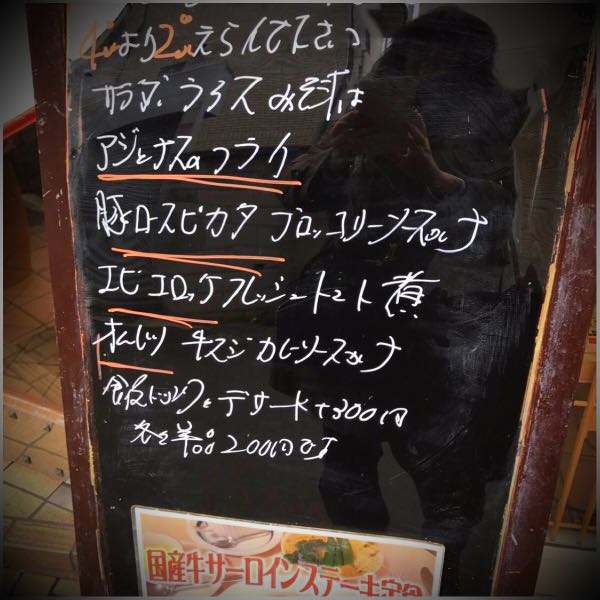 4つより2つえらんで下さい
サラダ. ライス みそ汁
アジとナスのフライ
豚ロースピカタ ブロッコリーソース
エビコロッケフレッシュトマト煮
オムレツ 牛スジカレーソース
ドリンクとデザート+300円
各単品200円
国産牛サーロインステーキ定食